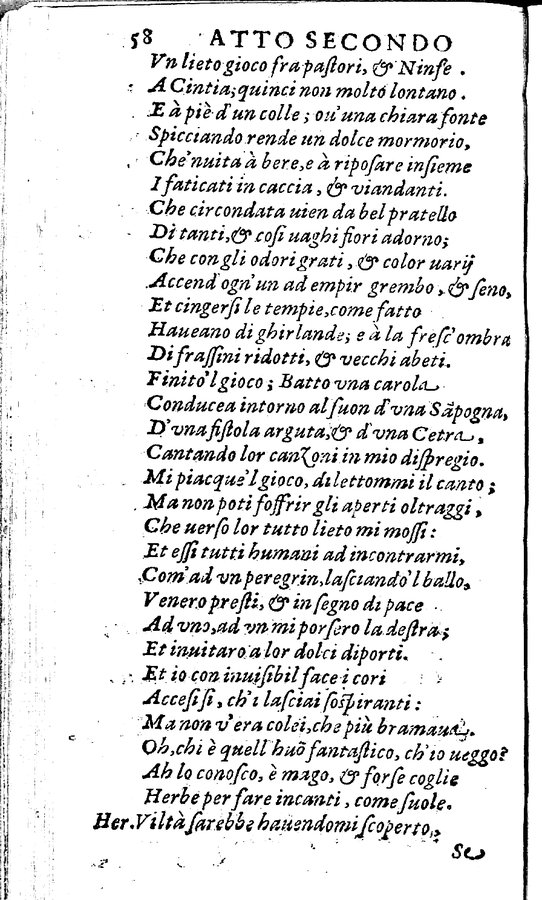 58 ATTO SECONDO
Vn lieto gioco fra paſtori, & Ninfe.
A Cintia; quinci non molto lontano.
E à piè d'un colle; ou'una chiara fonte
Spicciando rende un dolce mormorio,
Che'nuita à bere, e à ripoſare inſieme
I faticati in caccia, & viandanti.
Che circondata uien da bel pratello
Di tanti, & coſi uaghi fiori adorno;
Che con gli odori grati, & color uarij
Accend'ogn'un ad empir grembo, & ſeno,
Et cingerſi le tempie, come fatto
Haueano di ghirlande; e à la freſc'ombra
Di fraſſini ridotti, & vecchi abeti.
Finito'l gioco; Batto vna carola
Conducea intorno al ſuon d'vna Sãpogna,
D'vna fiſtola arguta, & d'vna Cetra,
Cantando lor canzoni in mio diſpregio.
Mi piacque'l gioco, dilettommi il canto;
Ma non poti ſoffrir gli aperti oltraggi,
Che uerſo lor tutto lieto mi moſſi:
Et eſſi tutti humani ad incontrarmi,
Com'ad vn peregrin, laſciando'l ballo,
Venero preſti, & in ſegno di pace
Ad vno, ad vn mi porſero la deſtra;
Et inuitaro a lor dolci diporti.
Et io con inuiſibil face i cori
Acceſi ſi, ch'i laſciai ſoſpiranti:
Ma non v'era colei, che più bramaua.
Oh, chi è quell'huõ fantaſtico, ch'io ueggo?
Ah lo conoſco, è mago, & forſe coglie
Herbe per fare incanti, come ſuole.
Her. Viltà ſarebbe hauendomi ſcoperto,
Se